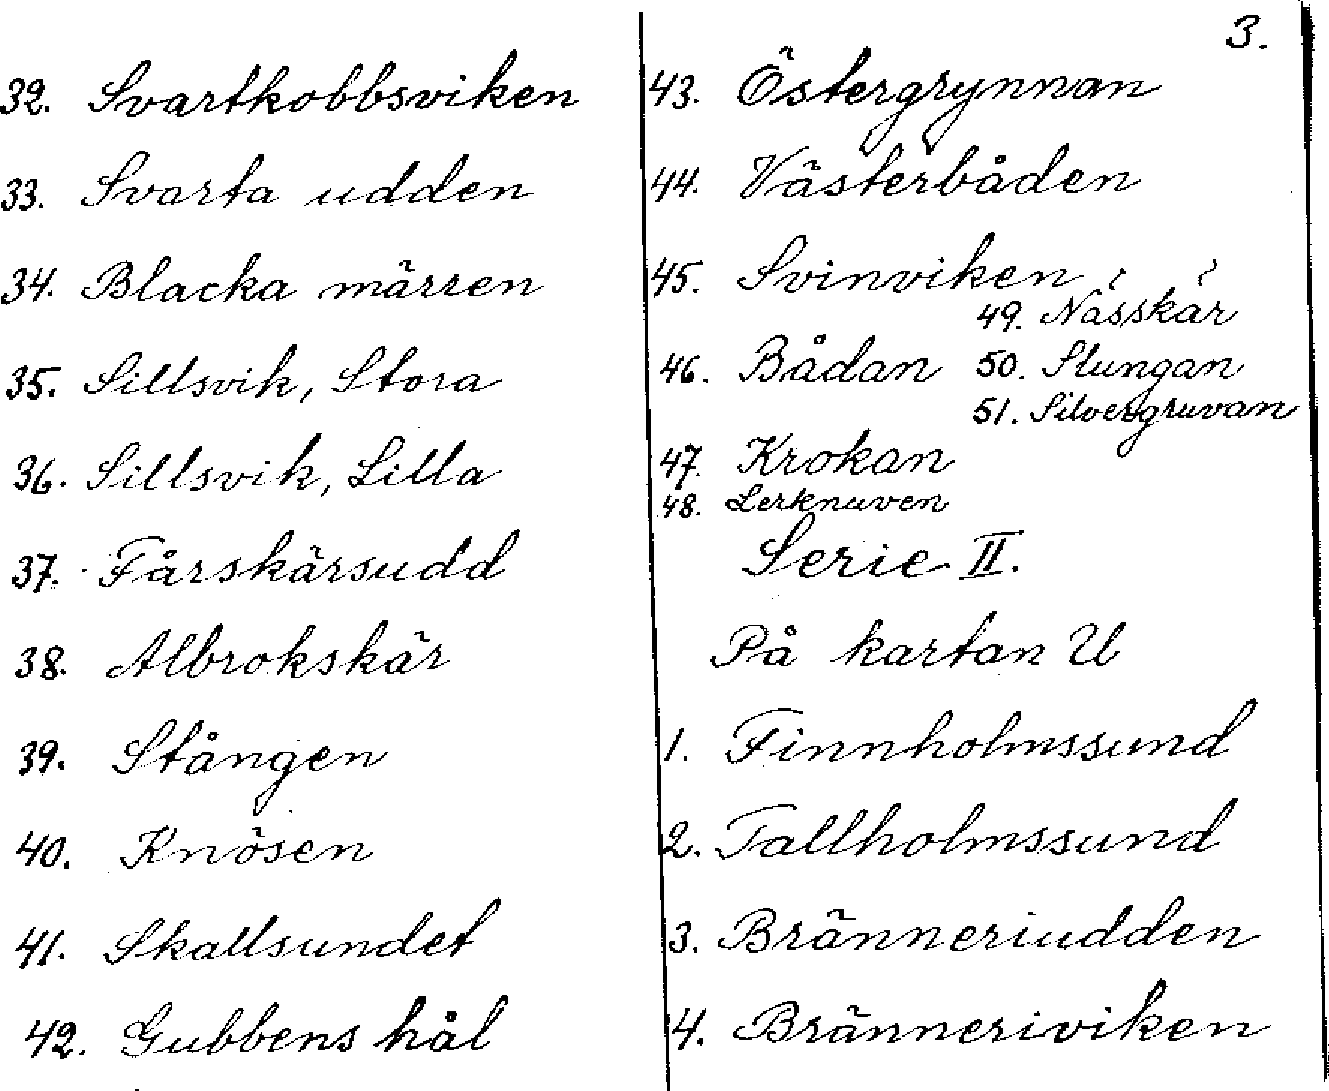 3.
32. Svartkobbsviken
33. Svarta udden
34. Blacka märren
35. Sillsvik, Stora
36. Sillsvik, Lilla
37. Fårskärsudd
38. Albrokskär
39. Stången
40. Knösen
41. Skallsundet
42. Gubbens hål
43. Östergrynnan
44. Västerbåden
45. Svinviken
49. Nässkär
46. Bådan
50. Slungan
51. Silvergruvan
47. Krokan
48. Lerknuven
Serie II.
På kartan U
1. Finnholmssund
2. Tallholmssund
3. Bränneriudden
4. Bränneriviken